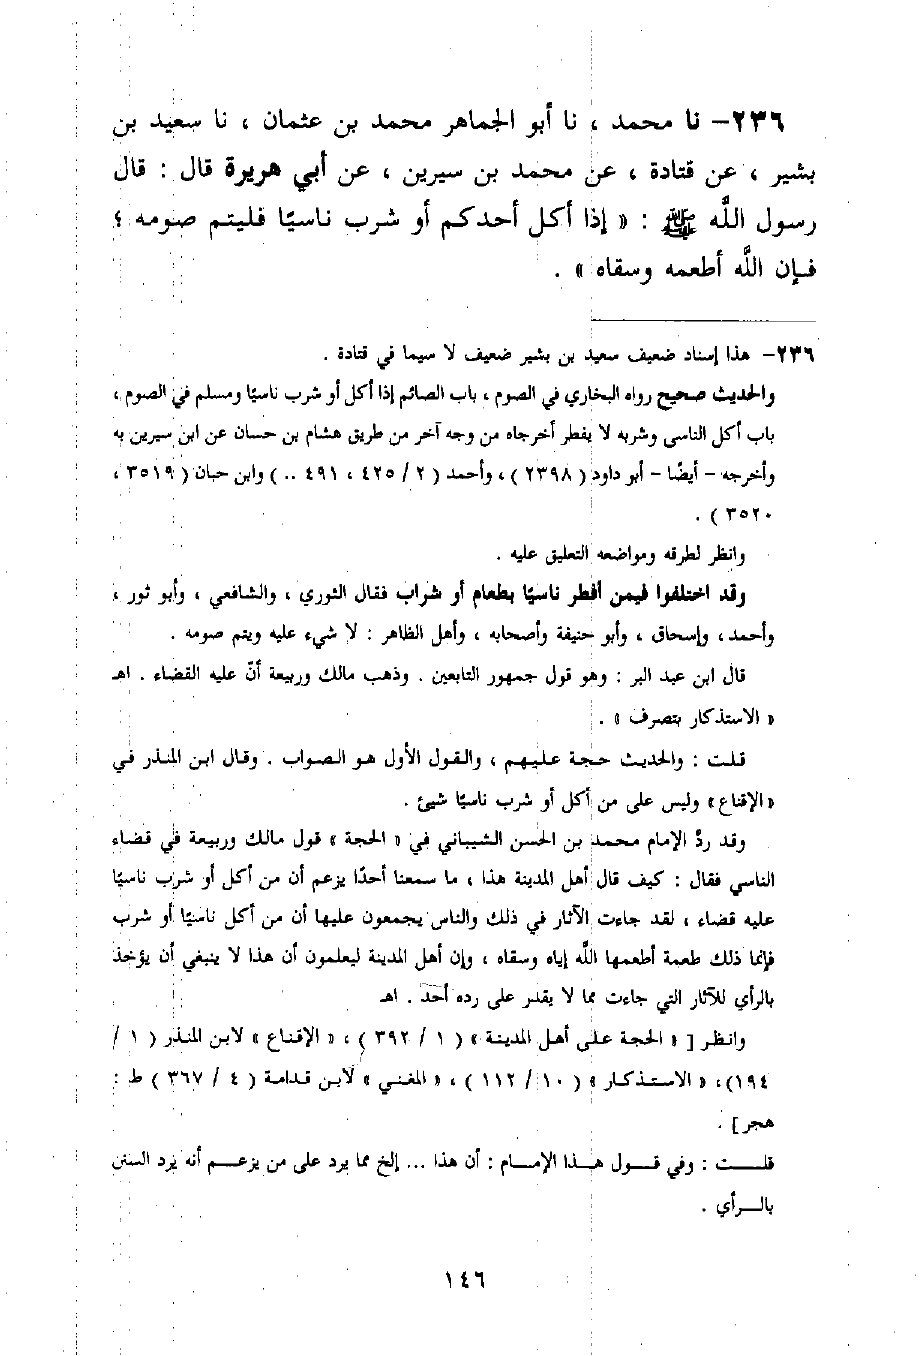 ٢٣٦– نا محمد ، نا أبو الجماهر محمد بن عثمان ، نا سعيد بن
بشير ، عن قتادة ، عن محمد بن سيرين ، عن أبي هريرة قال : قال
رسول اللَّه ﷺ : « إذا أكل أحدكم أو شرب ناسيًا فليتم صومه ؛
فإن اللَّه أطعمه وسقاه » .
٢٣٦– هذا إسناد ضعيف سعيد بن بشير ضعيف لا سيما في قتادة .
والحديث صحيح رواه البخاري في الصوم ، باب الصائم إذا أكل أو شرب ناسيًا ومسلم في الصوم ،
باب أكل الناسى وشربه لا يفطر أخرجاه من وجه آخر من طريق هشام بن حسان عن ابن سيرين به
وأخرجه – أيضًا – أبو داود ( ٢٣٩٨ ) ، وأحمد ( ٢ / ٤٢٥ ، ٤٩١ .. ) وابن حبان ( ٣٥١٩ ،
٣٥٢٠ ) .
وانظر لطرقه ومواضعه التعليق عليه .
وقد اختلفوا فيمن أفطر ناسيًا بطعام أو شراب فقال الثوري ، والشافعي ، وأبو ثور ،
وأحمد ، وإسحاق ، وأبو حنيفة وأصحابه ، وأهل الظاهر : لا شيء عليه ويتم صومه .
قال ابن عبد البر : وهو قول جمهور التابعين . وذهب مالك وربيعة أنّ عليه القضاء . اهـ
« الاستذكار بتصرف » .
قلت : والحديث حجة عليهم ، والقول الأول هو الصواب . وقال ابن المنذر في
« الإقناع » وليس على من أكل أو شرب ناسيًا شيئ .
وقد ردَّ الإمام محمد بن الحسن الشيباني في « الحجة » قول مالك وربيعة في قضاء
الناسي فقال : كيف قال أهل المدينة هذا ، ما سمعنا أحدًا يزعم أن من أكل أو شرب ناسيًا
عليه قضاء ، لقد جاءت الآثار في ذلك والناس يجمعون عليها أن من أكل ناسيًا أو شرب
فإنما ذلك طعمة أطعمها اللَّه إياه وسقاه ، وإن أهل المدينة ليعلمون أن هذا لا ينبغي أن يؤخذ
بالرأي للآثار التي جاءت مما لا يقدر على رده أحد . اهـ
وانظر [ « الحجة على أهل المدينة » ( ١ / ٣٩٢ ) ، « الإقناع » لابن المنذر ( ١ /
١٩٤) ، « الاستذكار » ( ١٠ / ١١٢ ) ، « المغني » لابن قدامة ( ٤ / ٣٦٧ ) ط :
هجر] .
قلت : وفي قول هذا الإمام : أن هذا ... إلخ مما يرد على من يزعم أنه يرد السنن
بالرأي .
١٤٦